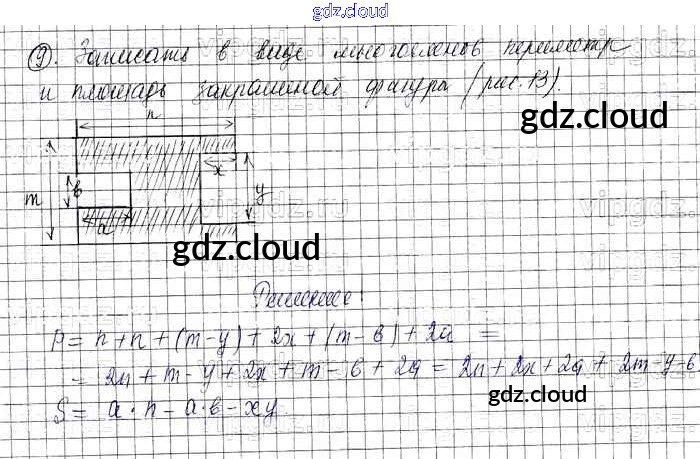 gdz.cloud
⑨. Записать в виде многочленов периметр
и площадь закрашеной фигуры (рис. 13).
gdz.cloud
n
x
в
m
y
a
vipgdz.ru
gdz.cloud
Решение:
P = n + n + (m - y) + 2x + (m - в) + 2a =
= 2n + m - y + 2x + m - в + 2a = 2n + 2x + 2a + 2m - y - в
gdz.cloud
S = a · n - a · в - xy